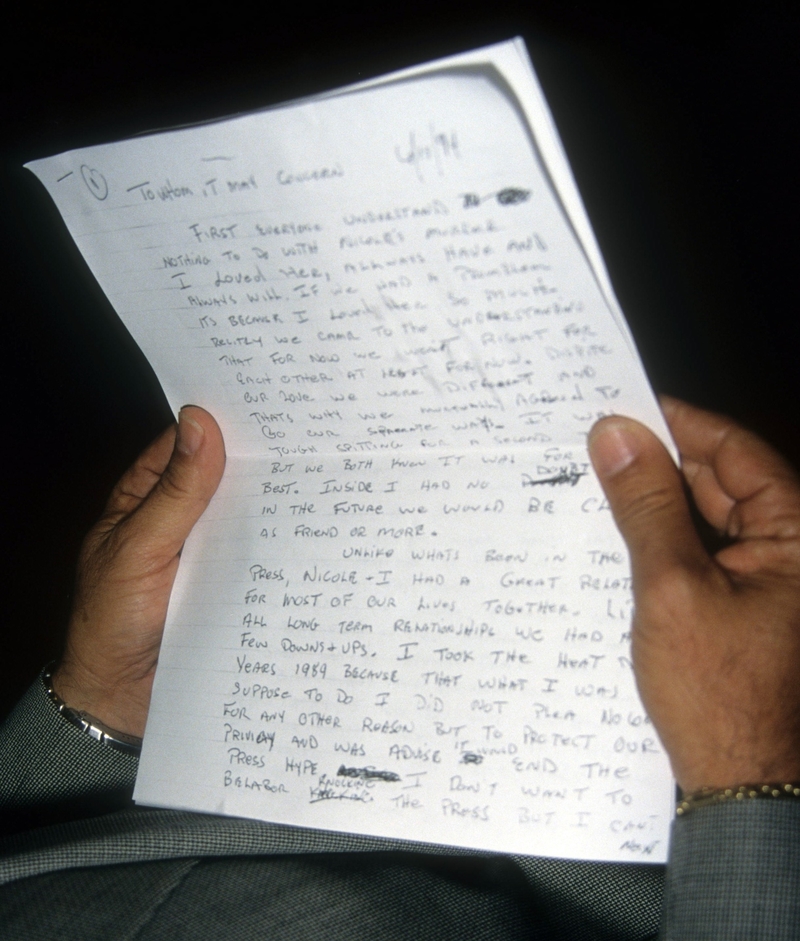 ① To Whom iT MAy CONCERN 6/15/94
FIRST EVERYONE UNDERSTAND
NOTHING TO DO WITH NICOLE'S MURDER
I Loved Her, ALLWAYS HAVE AND
ALWAYS WILL. IF WE HAD A PROMBLEM
ITS BECAUSE I Loved Her SO MUCH.
WE CAME TO The UNDERSTANDING
THAT FOR NOW WE RIGHT FOR
EACH OTHER AT LEAST FOR NOW. DISPITE
OUR LOVE WE WERE DIFFERENT AND
THATS WHY WE AGREED TO
GO WAYS. IT WAS
TOUGH SPITTING FOR A SECOND
BUT WE BOTH KNEW IT WAS FOR
BEST. INSIDE I HAD NO DOUBT
IN THE FUTURE WE WOULD BE CL
AS FRIEND OR MORE.
UNLIKE WHATS BEEN IN THE
PRESS, NICOLE + I HAD A GREAT RELAT
FOR MOST OF OUR LIVES TOGETHER. LI
ALL LONG TERM RELATIONSHIPS WE HAD A
FEW DOWNS + UPS. I TOOK THE HEAT N
YEARS 1989 BECAUSE THAT WHAT I WAS
SUPPOSE TO DO I DID NOT PLEA NO CON
FOR ANY OTHER REASON BUT TO PROTECT OUR
PRIVICY AND WAS ADVISE IT WOULD END THE
PRESS HYPE I DON'T WANT TO
BELABOR KNOCKING THE PRESS BUT I CAN'T